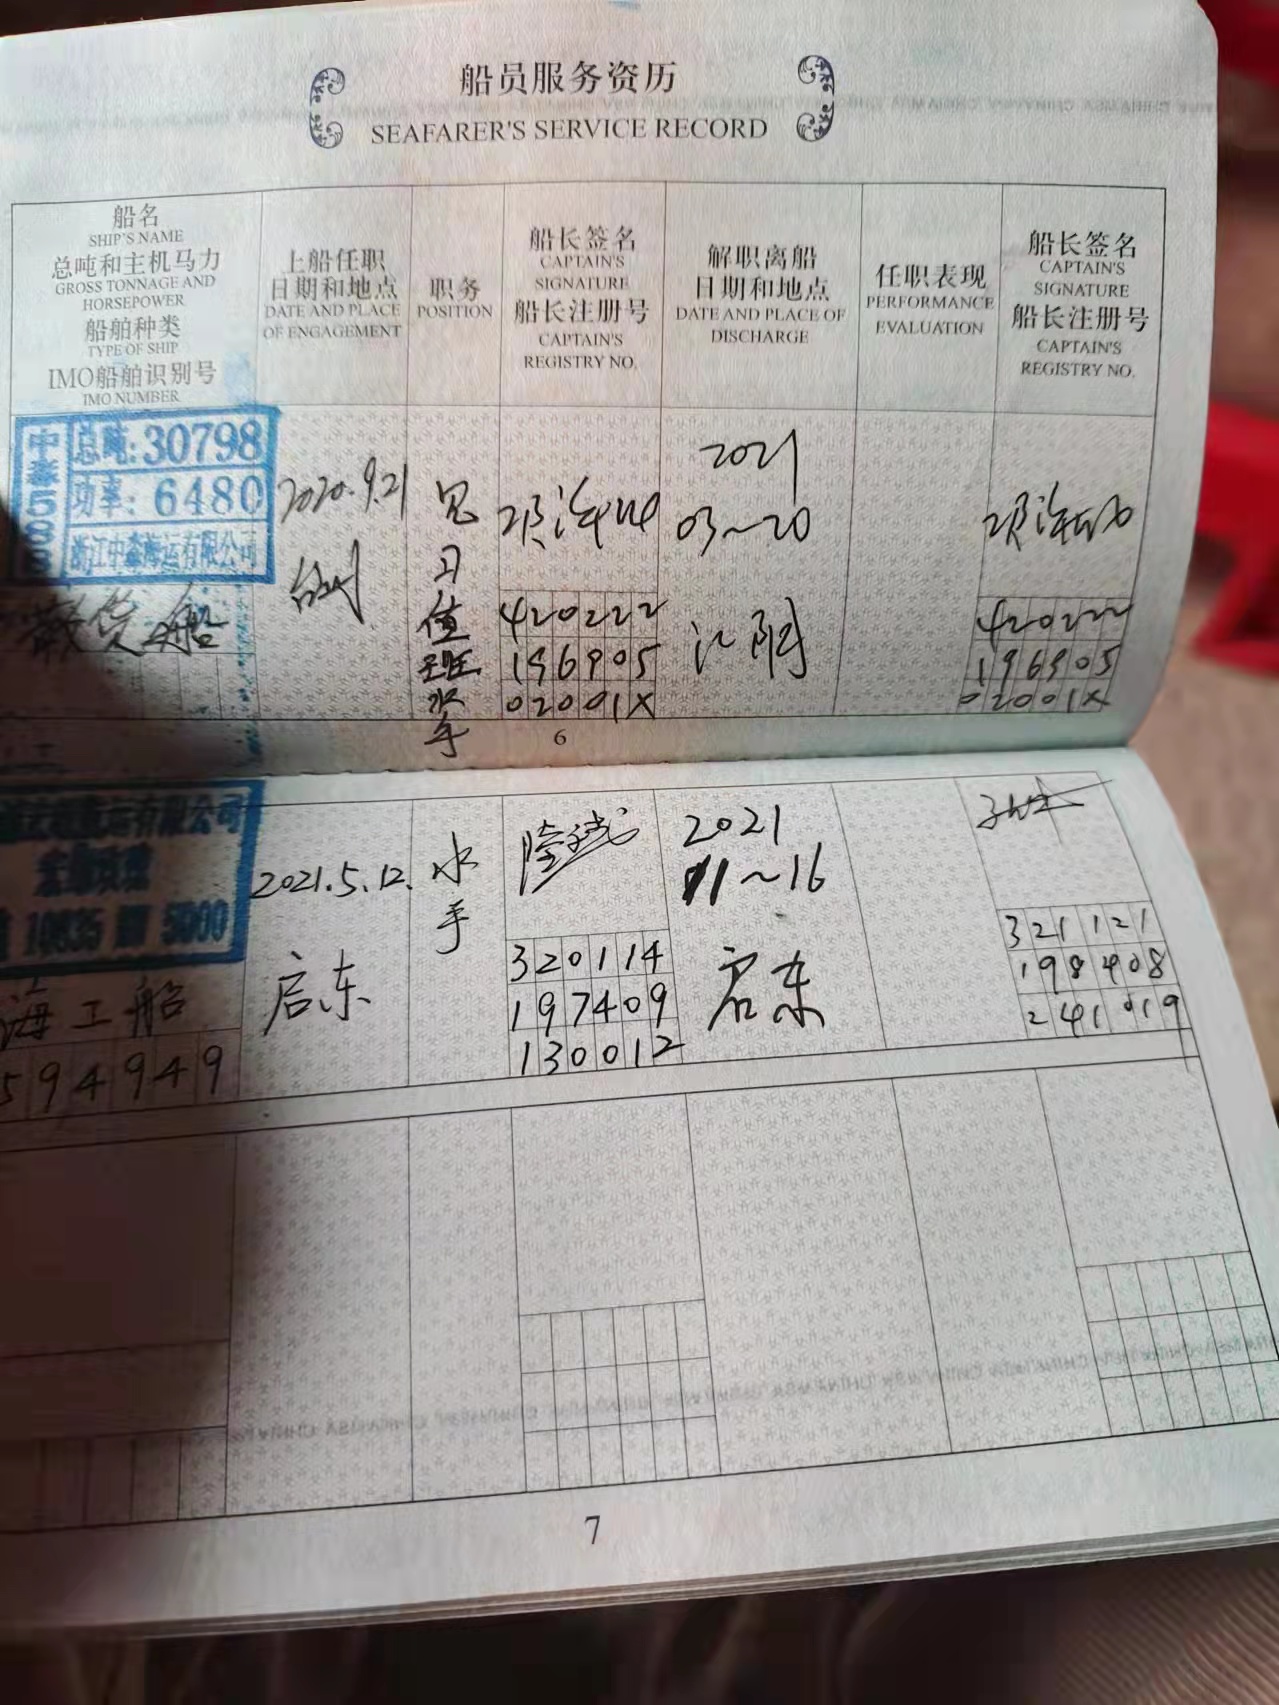 船员服务资历
SEAFARER'S SERVICE RECORD
船名
SHIP'S NAME
总吨和主机马力
GROSS TONNAGE AND
HORSEPOWER
船舶种类
TYPE OF SHIP
IMO船舶识别号
IMO NUMBER
上船任职
日期和地点
DATE AND PLACE
OF ENGAGEMENT
职务
POSITION
船长签名
CAPTAIN'S
SIGNATURE
船长注册号
CAPTAIN'S
REGISTRY NO.
解职离船
日期和地点
DATE AND PLACE OF
DISCHARGE
任职表现
PERFORMANCE
EVALUATION
船长签名
CAPTAIN'S
SIGNATURE
船长注册号
CAPTAIN'S
REGISTRY NO.
中森58
总吨:30798
功率:6480
浙江中森海运有限公司
散货船
2020.9.21
见
习
值
班
水
手
420222
196905
02001X
2021
03~20
江阴
420222
196905
02001X
6
运有限公司
10835 5000
海工船
594949
2021.5.12.
启东
水
手
320114
197409
130012
2021
11~16
启东
321121
198408
241019
CHINAMSA CHINAMSA CHINAMSA
7